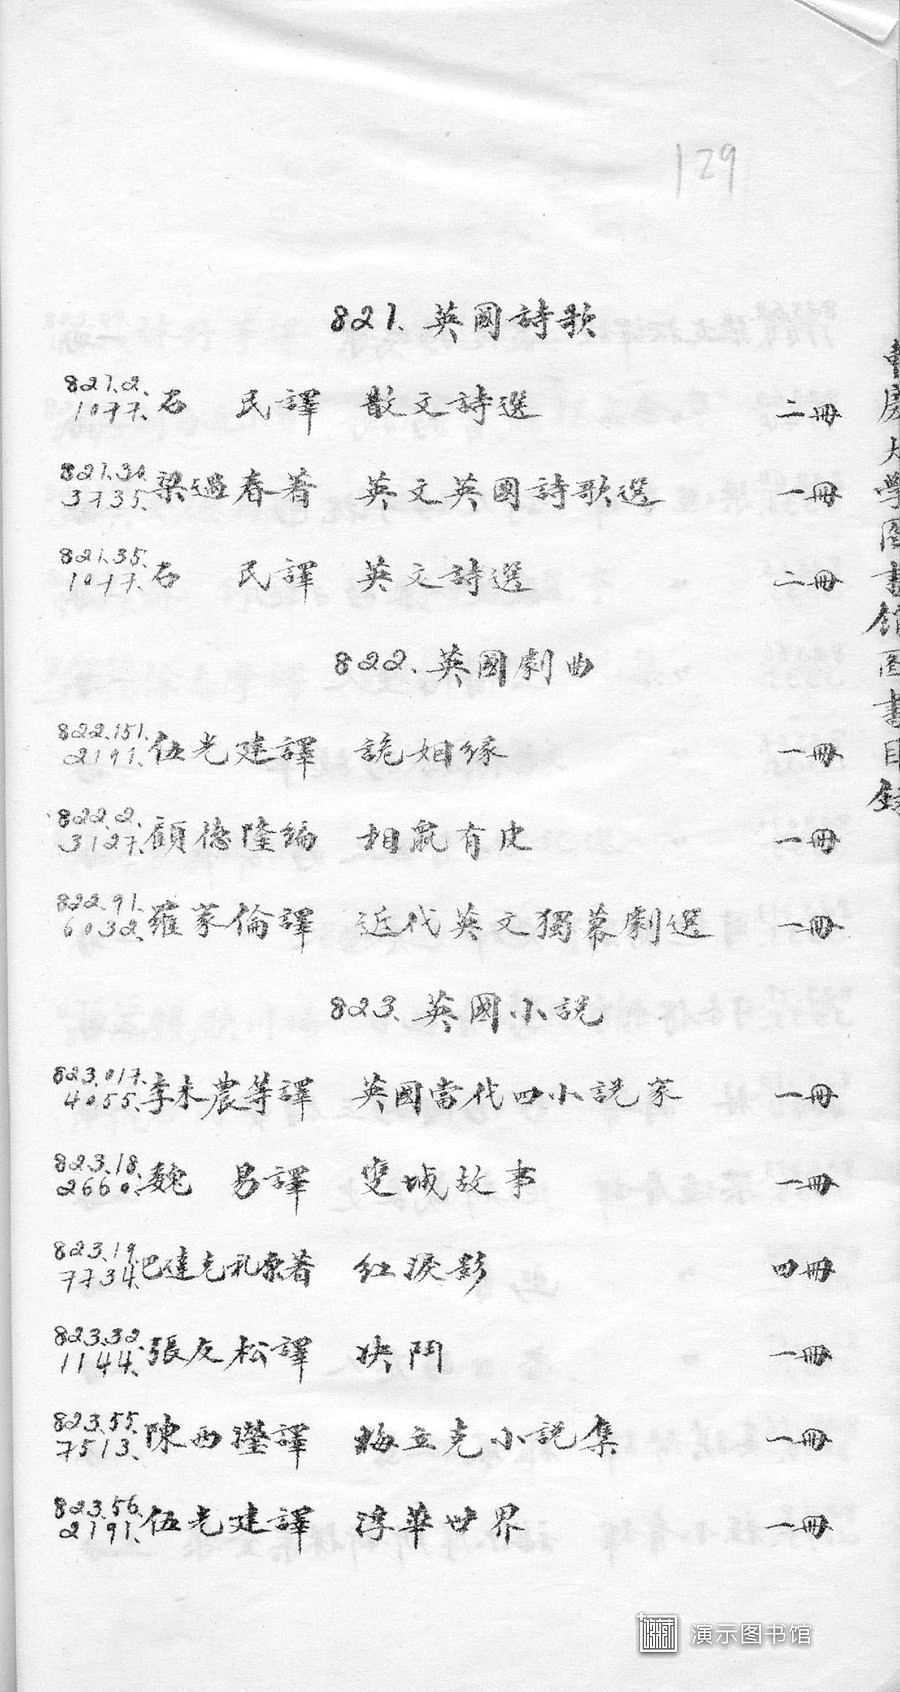 129
821. 英國詩歌
821.2. 1077. 石 民譯 散文詩選 二冊
821.30. 3735. 梁遇春著 英文英國詩歌選 一冊
821.35. 1077. 石 民譯 英文詩選 二冊
822. 英國劇曲
822.151. 2191. 伍光建譯 詭姻緣 一冊
822.2. 3127. 顧德隆編 相鼠有皮 一冊
822.91. 6032. 羅家倫譯 近代英文獨幕劇選 一冊
823. 英國小說
823.017. 4055. 李木農等譯 英國當代四小說家 一冊
823.18. 2660. 魏 易譯 雙城故事 一冊
823.19. 7734. 巴達克禮原著 紅淚影 四冊
823.32. 1144. 張友松譯 決鬥 一冊
823.55. 7513. 陳西瀅譯 梅立克小說集 一冊
823.56. 2191. 伍光建譯 浮華世界 一冊
重慶大學圖書館圖書目錄
演示图书馆